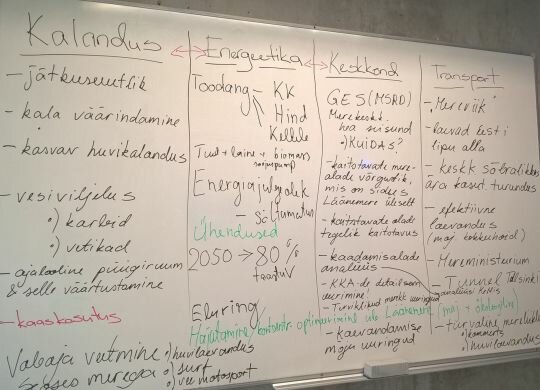 Kalandus
- jätkusuutlik
- kala väärindamine
- kasvav huvikalandus
- vesiviljelus
•) karbid
•) vetikad
- ajalooline püügiruum
& selle väärtustamine
- kaaskasutus
Vabaja veetmine
seoses merega
•) huvilaevandus
•) surf
•) veemotosport
Energeetika
Toodang - KK
Hind
Kellele
Tuul + laine + biomass
Energiajulgeolek
- sõltumatus
Ühendused
2050 → 80%
taastuv
Elering
Hajutamine optimeerimine üle Läänemere (maj + ökoloogiline)
Keskkond
GES (MSRD)
Merekeskk.
hea seisund
•) KUIDAS?
- kaitstavate mere-
alade võrgustik,
mis on sidus
Läänemere üleselt
- kaitstavate alade
tegelik kaitstavus
- kaadamisalade
analüüs
- KKA-de detailsem
uurimine
- Terviklikud merekk uuringud
- kaevandamise
mõju uuringud
Transport
- "Mereriik"
- laevad Eesti
lipu alla
- keskk sõbralikkus
ära kasut. turundus
- efektiivne
laevandus
(maj. kokkuhoid)
- Mereministeerium
- Tunnel Talsinki
analüüsi
- turvaline mereliiklus
•) kommerts
•) huvilaevandus